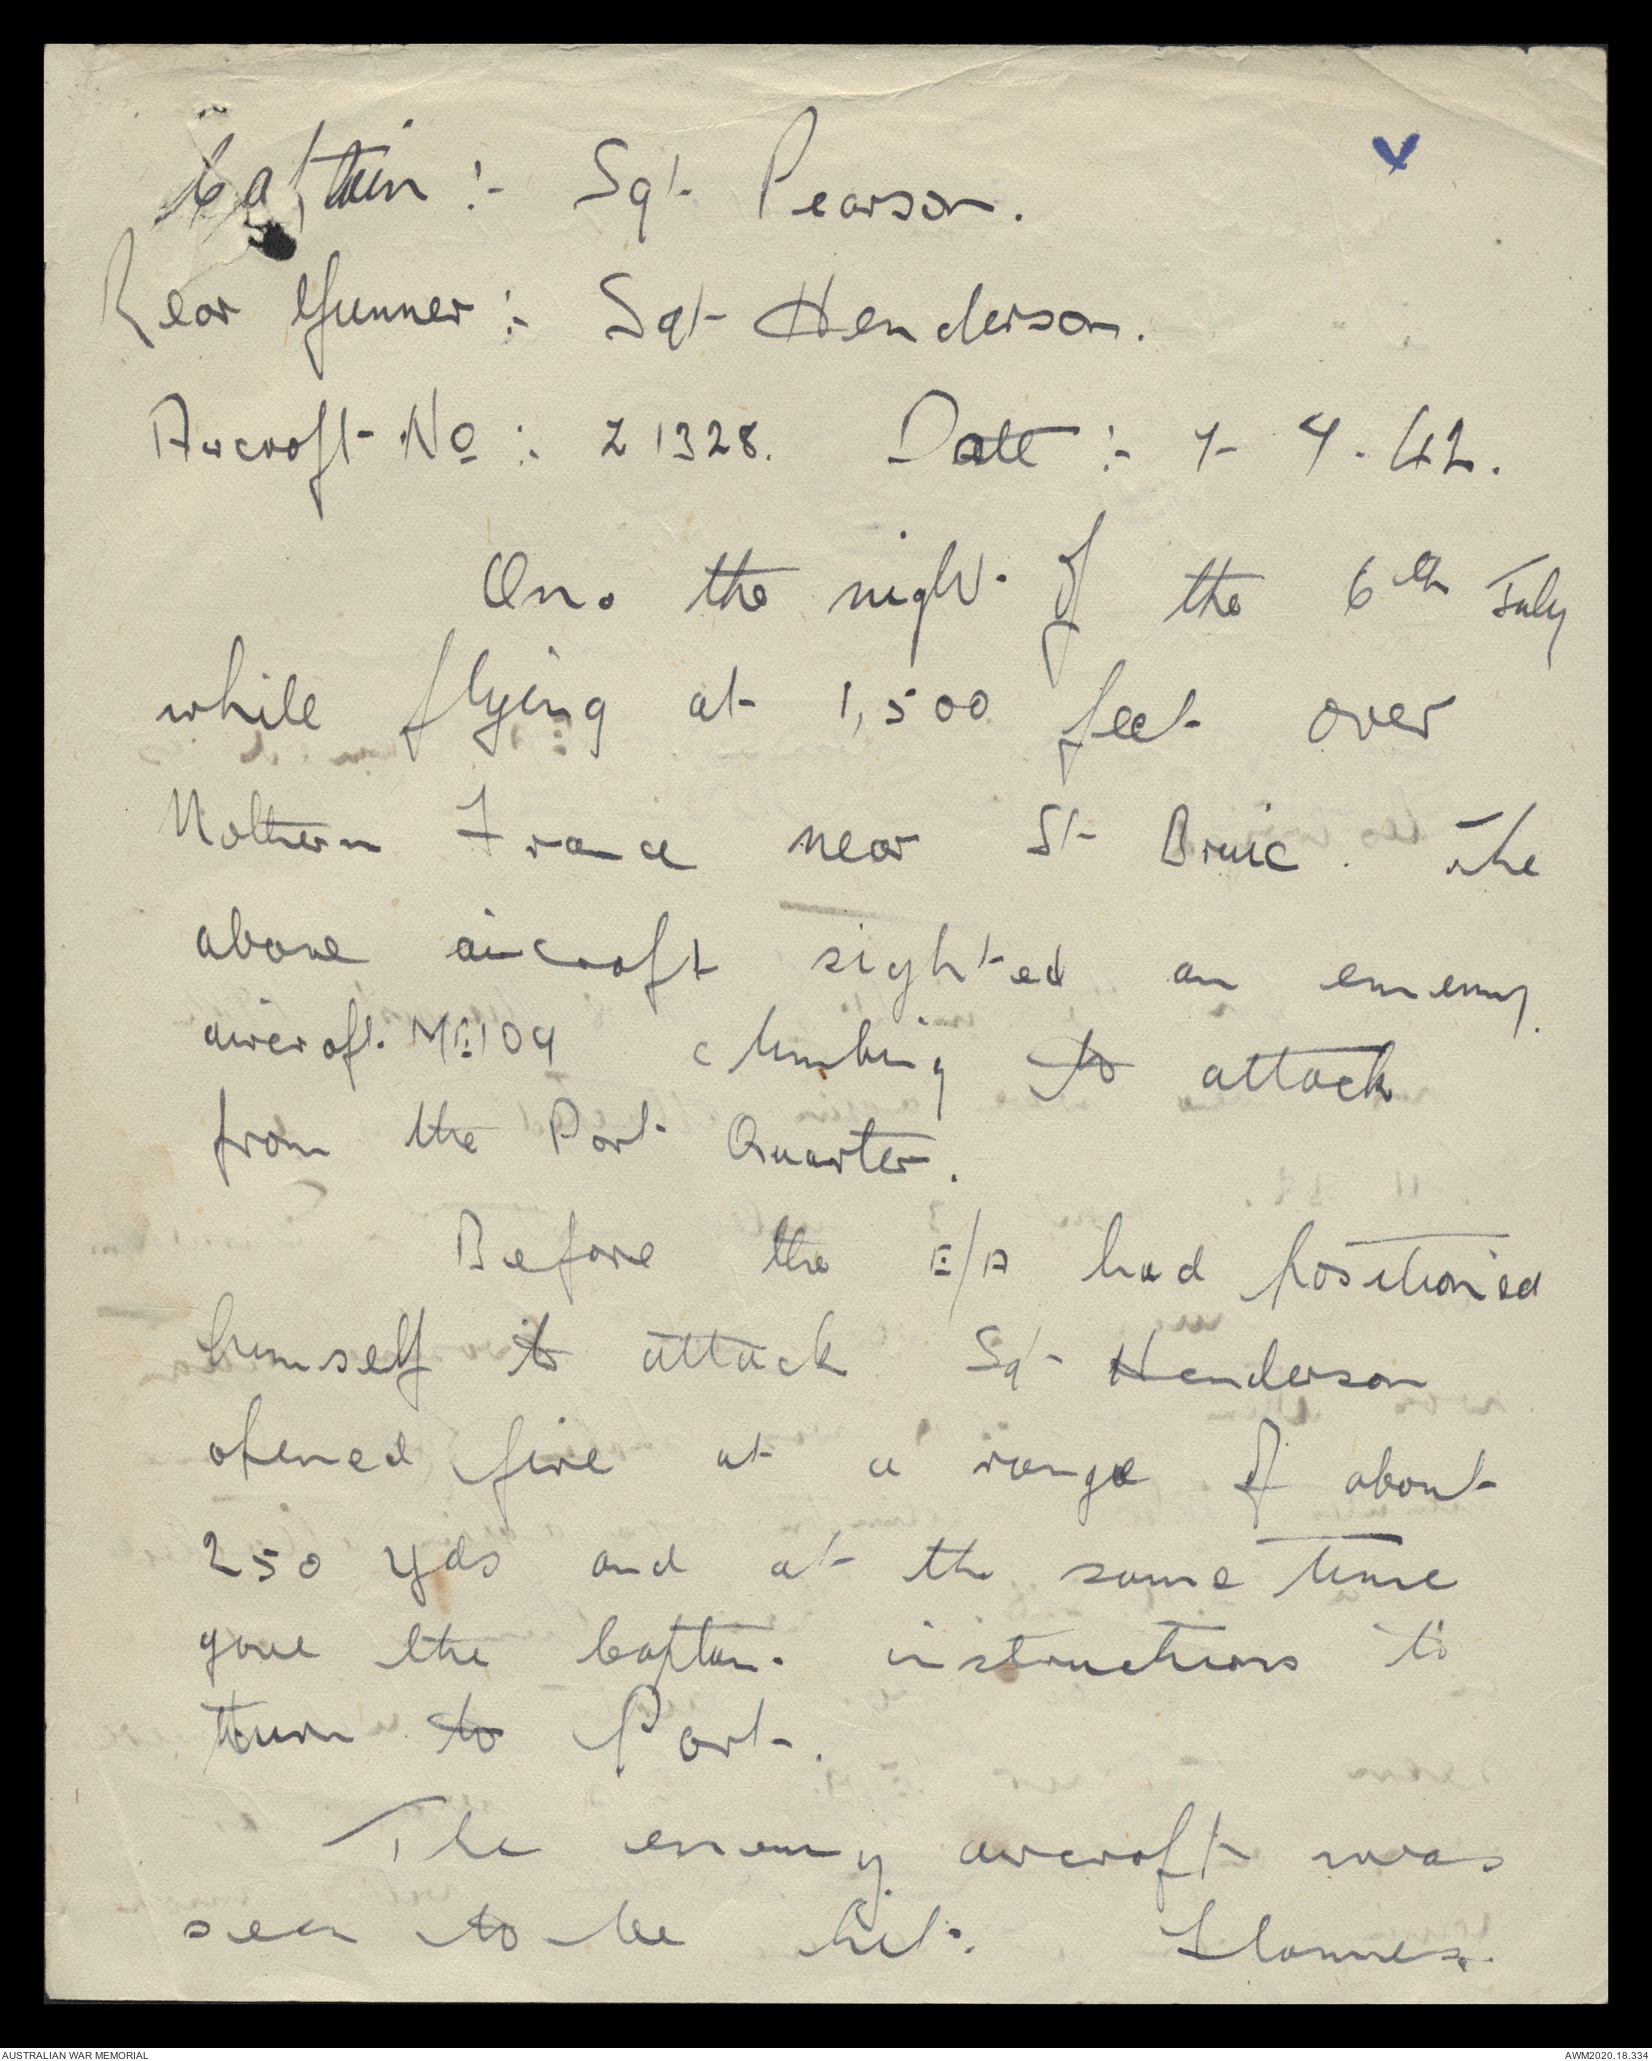 Captain :- Sgt Pearson.
Rear Gunner :- Sgt Henderson.
Aircraft No :- Z1328. Date :- 7-7.42.
On. the night of the 6th July
while flying at 1,500 feet over
Nothern France near St Bruic. The
above aircraft sighted an enemy
aircraft ME109 climbing to attack
from the Port Quarter.
Before the E/A had positioned
himself to attack Sgt Henderson
opened fire at a range of about
250 yds and at the same time
gave the Captain instructions to
turn to Port.
The enemy aircraft was
seen to be hit. Flames
AUSTRALIAN WAR MEMORIAL
AWM2020.18.334